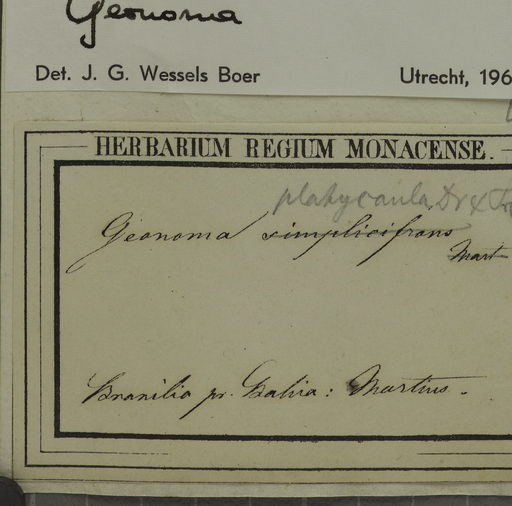 Geonoma
Det. J. G. Wessels Boer Utrecht, 196
HERBARIUM REGIUM MONACENSE.
platycaula Dr & Tr
Geonoma simplicifrons
Mart
Brasilia pr. Bahia: Martius.